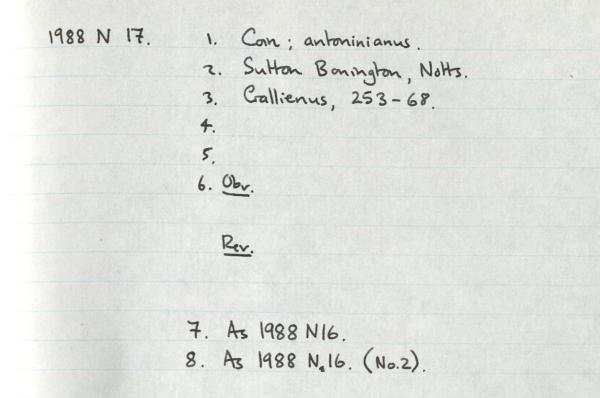 1988 N 17. 1. Coin; antoninianus.
2. Sutton Bonington, Notts.
3. Gallienus, 253-68.
4.
5.
6. Obv.
Rev.
7. As 1988 N16.
8. As 1988 N.16. (No.2).